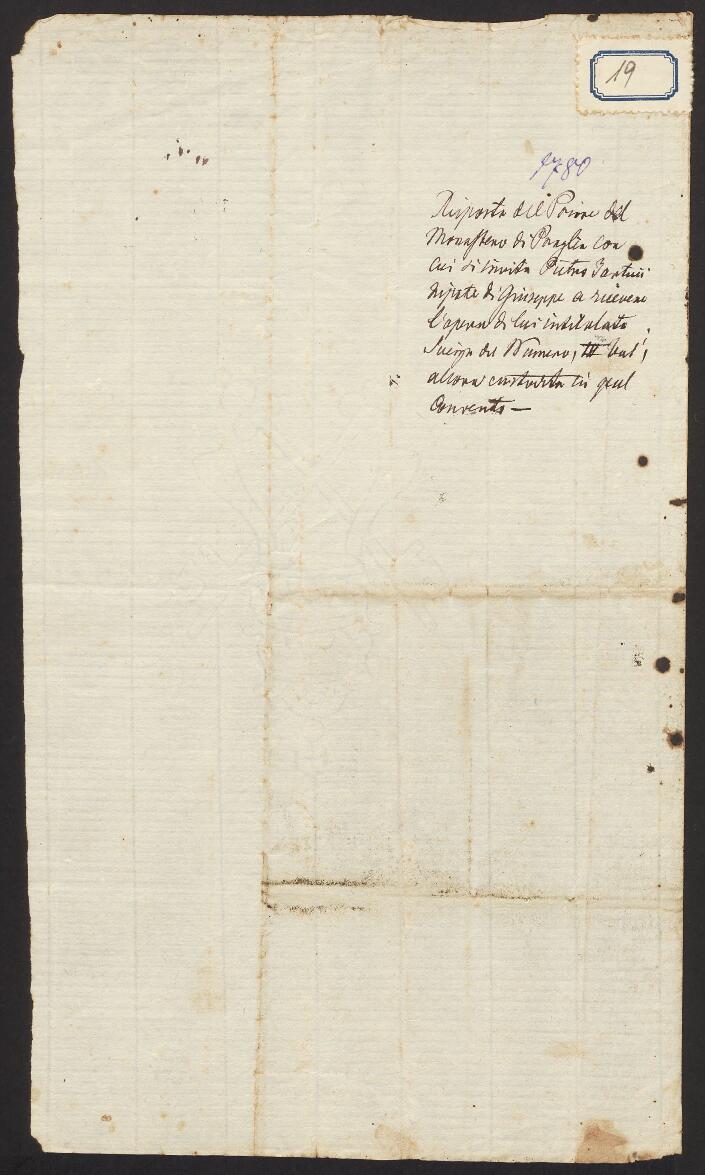 19
1780
Risposta del Priore del
Monastero di Praglia con
cui si invita Pietro Tartini
nipote di Giuseppe a ricevere
l'opera di lui intitolata
del Numero,
allora custodita in quel
Convento —